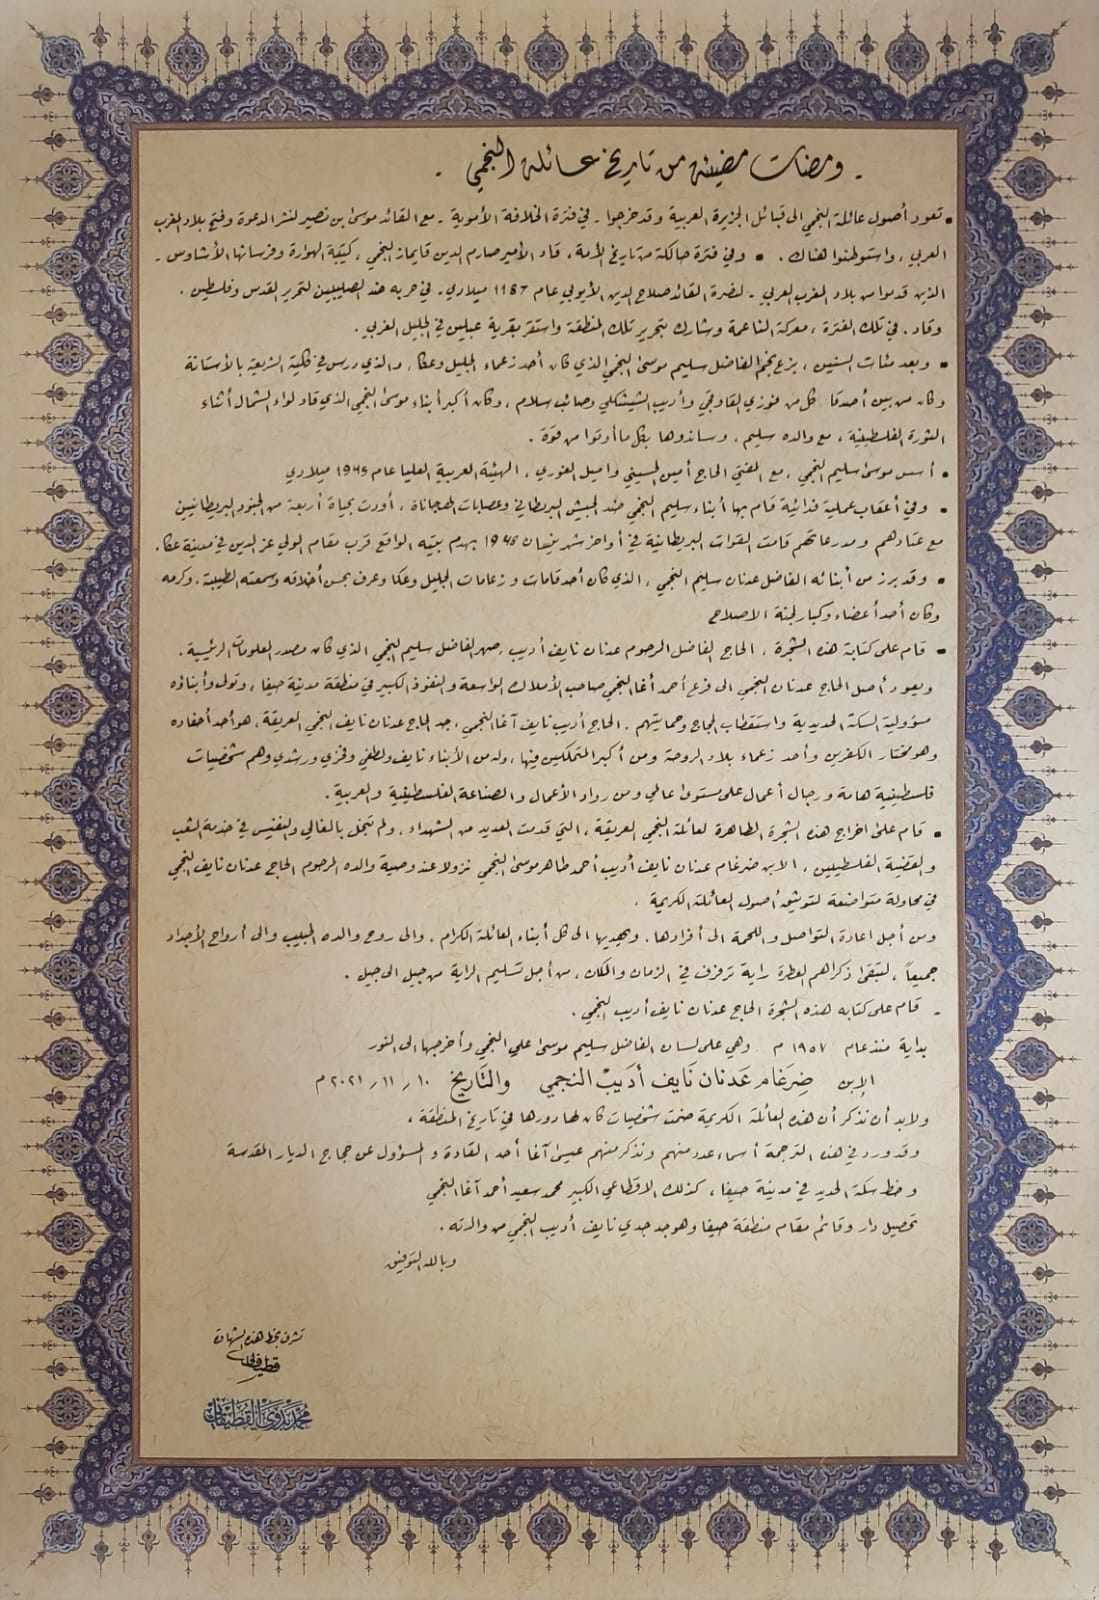 - ومضات مضيئة من تاريخ عائلة النجمي -
• تعود أصول عائلة النجمي الى قبائل الجزيرة العربية وقد خرجوا - في فترة الخلافة الأموية - مع القائد موسى ابن نصير لنشر الدعوة وفتح بلاد المغرب
العربي ، واستوطنوا هناك . • وفي فترة حالكة من تاريخ الأمة ، قاد الأمير صارم الدين قايماز النجمي ، كتيبة الهوارة وفرسانها الأشاوس -
الذين قدموا من بلاد المغرب العربي - لنصرة القائد صلاح الدين الأيوبي عام 1187 ميلادي - في حربه ضد الصليبيين لتحرير القدس وفلسطين .
وقاد ، في تلك الفترة ، معركة الناعمة وشارك بتحرير تلك المنطقة واستقر بقرية عبلين في الجليل الغربي .
• وبعد مئات السنين ، بزغ نجم الفاضل سليم موسى النجمي الذي كان أحد زعماء الجليل وعكا ، والذي درس في كلية الشريعة بالأستانة
وكان من بين أصدقا كل من فوزي القاوقجي وأديب الشيشكلي وصائب سلام ، وكان أكبر أبناء موسى النجمي الذي قاد لواء الشمال أثناء
الثورة الفلسطينية ، مع والده سليم ، وساندوها بكل ما أوتوا من قوة .
• أسس موسى سليم النجمي ، مع المفتي الحاج أمين الحسيني واميل الغوري ، الهيئة العربية العليا عام 1945 ميلادي
• وفي أعقاب عملية فدائية قام بها أبناء سليم النجمي ضد الجيش البريطاني وعصابات الهجاناة ، أودت بحياة أربعة من الجنود البريطانيين
مع عتادهم ومدرعاتهم قامت القوات البريطانية في أواخر شهر نيسان 1945 بهدم بيته الواقع قرب مقام الولي عز الدين في مدينة عكا .
• وقد برز من أبنائه الفاضل عدنان سليم النجمي ، الذي كان أحد قامات وزعامات الجليل وعكا وعرف بحسن أخلاقه وسمعته الطيبة ، وكرمه
وكان أحد أعضاء وكبار لجنة الاصلاح
• قام على كتابة هذه الشجرة ، الحاج الفاضل المرحوم عدنان نايف أديب ، صهر الفاضل سليم النجمي الذي كان مصدر المعلومات الرئيسية .
ويعود أصل الحاج عدنان النجمي الى فرع أحمد أغا النجمي صاحب الأملاك الواسعة والنفوذ الكبير في منطقة مدينة حيفا ، وتولى وأبناؤه
مسؤولية السكة الحديدية واستقطاب الحجاج وحمايتهم . الحاج أديب نايف آغا النجمي ، جد الحاج عدنان نايف النجمي العريقة ، هو أحد أحفاده
وهو مختار الكفرين وأحد زعماء بلاد الروحة ومن أكبر المتملكين فيها ، وله من الأبناء نايف ولطفي وفخري ورشدي وهم شخصيات
فلسطينية هامة ورجال أعمال على مستوى عالي ومن رواد الأعمال والصناعة الفلسطينية والعربية .
• قام على اخراج هذه الشجرة الطاهرة لعائلة النجمي العريقة ، التي قدمت العديد من الشهداء ، ولم تبخل بالغالي والنفيس في خدمة الشعب
والقضية الفلسطينيين ، الابن ضرغام عدنان نايف أديب أحمد طاهر موسى النجمي نزولا عند وصية والده المرحوم الحاج عدنان نايف النجمي
في محاولة متواضعة لتوثيق أصول العائلة الكريمة .
ومن أجل اعادة التواصل واللحمة الى أفرادها ، ويهديها الى كل أبناء العائلة الكرام ، والى روح والده الحبيب والى أرواح الأجداد
جميعاً ، لتبقى ذكراهم العطرة راية ترفرف في الزمان والمكان ، من أجل تسليم الراية من جيل الى جيل .
- قام على كتابه هذه الشجرة الحاج عدنان نايف أديب النجمي .
بداية منذ عام ١٩٥٧ م وهي على لسان الفاضل سليم موسى علي النجمي وأخرجها الى النور
الإبن ضِرغام عَدنان نَايف أدَيبْ النجمي والتَاريخ ١٠ / ١١ / ٢٠٢١ م
ولابد أن نذكر أن هذه العائلة الكريمة ضمت شخصيات كان لها دورها في تاريخ المنطقة ،
وقد ورد في هذه الترجمة أسماء عدد منهم ونذكر منهم عيسى آغا أحد القادة والمسؤول عن حجاج الديار المقدسة
وخط سكة الحديد في مدينة حيفا ، كذلك الاقطاعي الكبير محمد سعيد أحمد آغا النجمي
تحصيل دار وقائم مقام منطقة حيفا وهو جد جدي نايف أديب النجمي من والدته .
وبالله التوفيق
تشرف بخط هذه الشهادة
محمد بدوي القطيفان